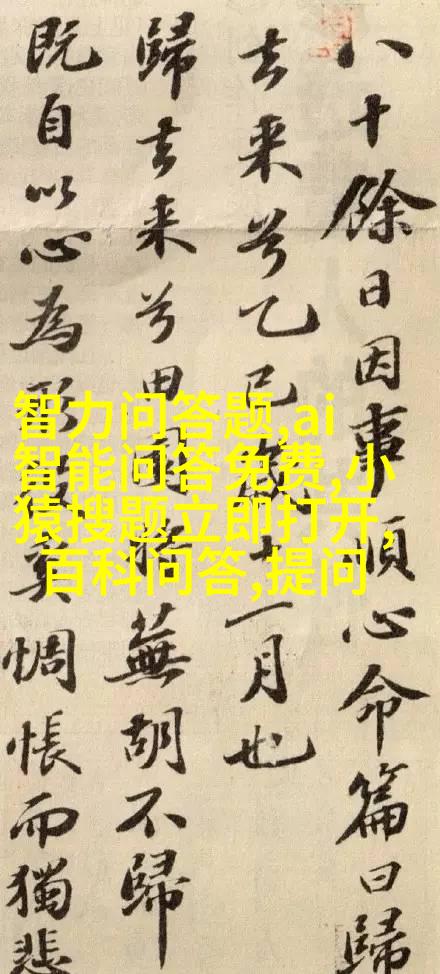 八十餘日因事順心命篇曰歸
去来兮乙巳歲十一月也
歸去来兮田園将蕪胡不歸
既自以心為形役奚惆悵而獨悲
智力问答题,ai
智能问答免费,小
猿搜题立即打开,
百科问答,提问